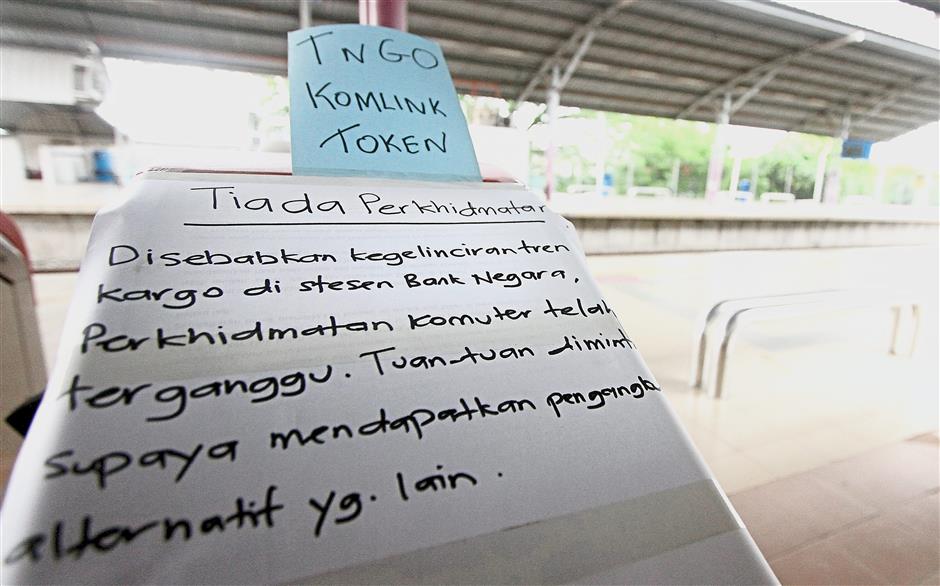 TNGO
KOMLINK
TOKEN
Tiada Perkhidmatan
Disebabkan kegelinciran tren
kargo di stesen Bank Negara,
Perkhidmatan komuter telah
terganggu. Tuan-tuan dimint
supaya mendapatkan pengangku
alternatif yg. lain.